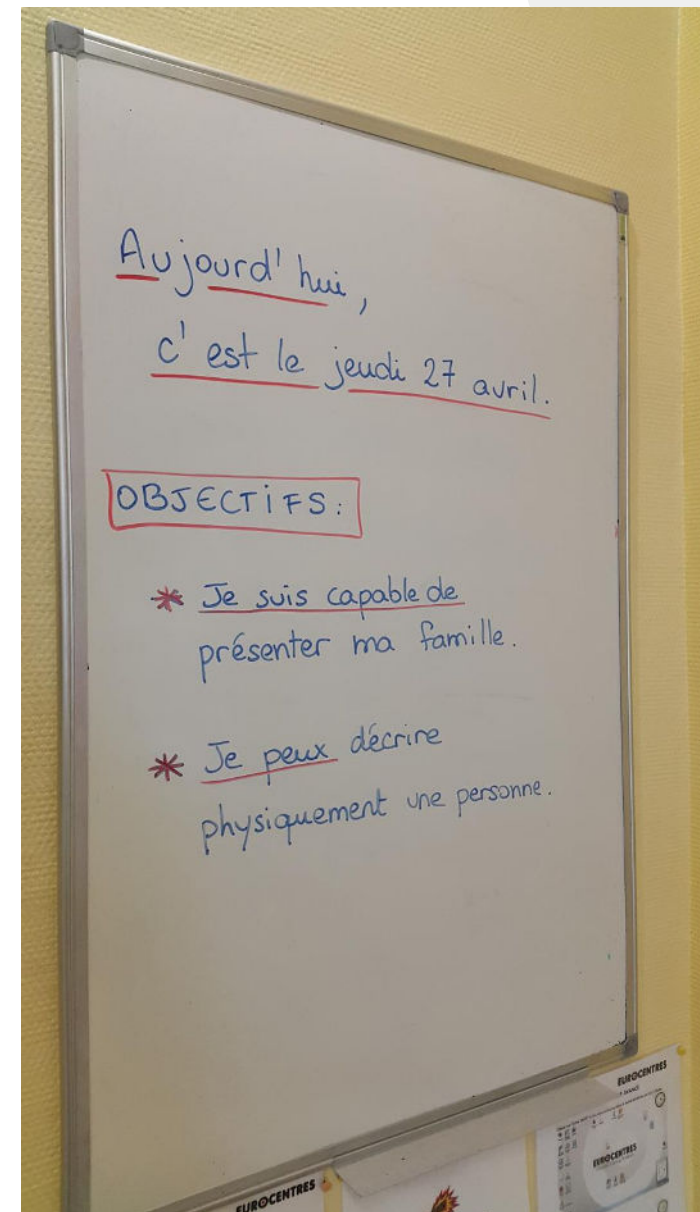 Aujourd'hui,
c'est le jeudi 27 avril.
OBJECTIFS :
* Je suis capable de
présenter ma famille.
* Je peux décrire
physiquement une personne.
EUROCENTRES
EUROCENTRES
EUROCENTRES